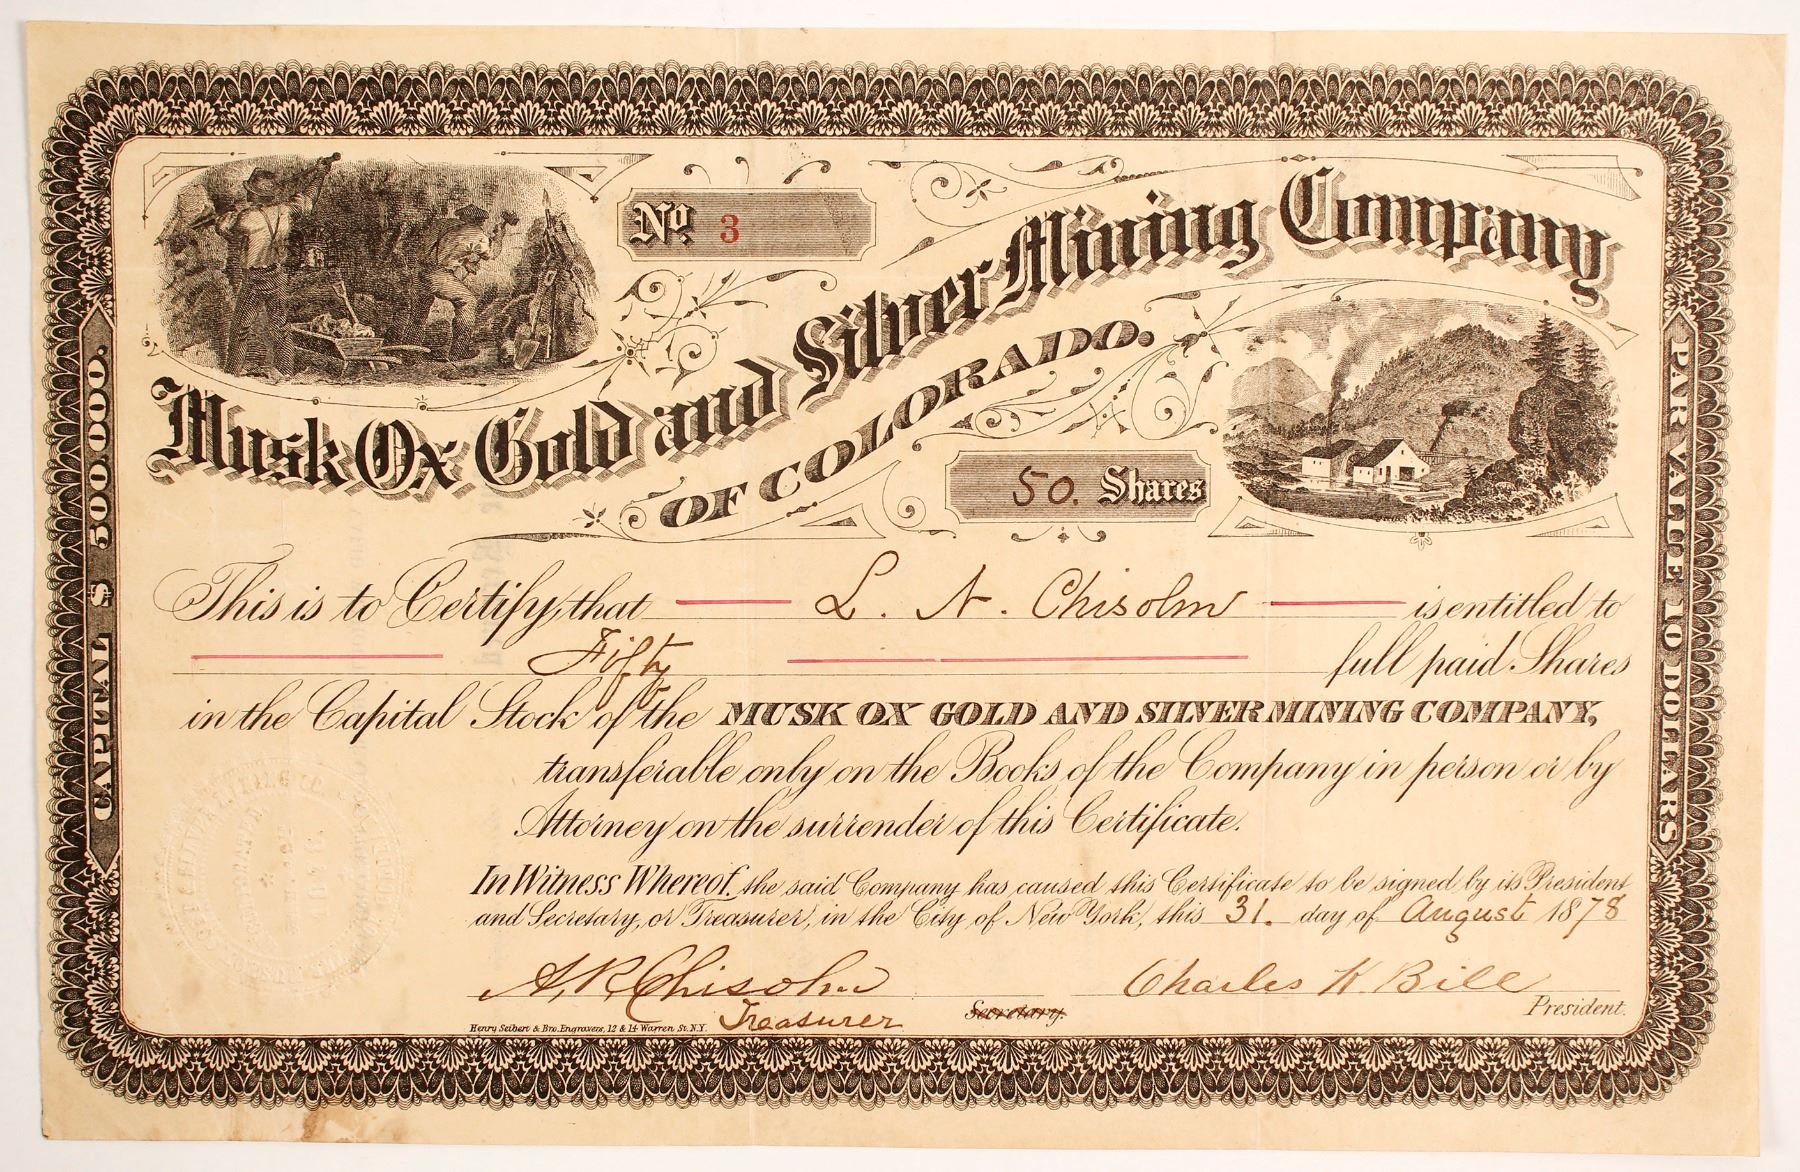 No. 3
Musk Ox Gold and Silver Mining Company
OF COLORADO.
50. Shares
CAPITAL $ 500.000.
PAR VALUE 10 DOLLARS
This is to Certify, that L. N. Chisolm is entitled to
Fifty full paid Shares
in the Capital Stock of the MUSK OX GOLD AND SILVER MINING COMPANY,
transferable only on the Books of the Company in person or by
Attorney on the surrender of this Certificate.
In Witness Whereof, the said Company has caused this Certificate to be signed by its President
and Secretary, or Treasurer, in the City of New York, this 31. day of August 1878
A. R. Chisolm Charles K. Bill
Treasurer Secretary. President.
Henry Seibert & Bro. Engravers, 12 & 14 Warren St. N.Y.